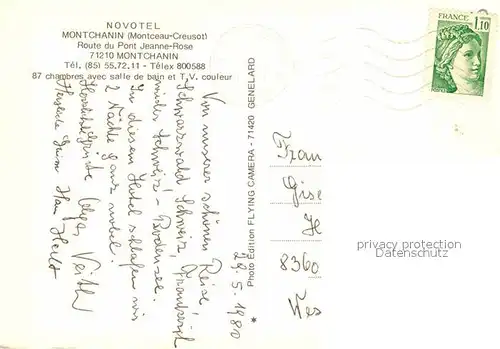 NOVOTEL
MONTCHANIN (Montceau-Creusot)
Route du Pont Jeanne-Rose
71210 MONTCHANIN
Tél. (85) 55.72.11 - Télex 800588
87 chambres avec salle de bain et T.V. couleur
FRANCE
1,10
Photo Edition FLYING CAMERA - 71420 GENELARD
29.5.1980
Von unserer schönen Reise
Schwarzwald, Schweiz, Frankreich
wieder Schweiz - Bodensee.
In diesem Hotel schlafen wir
2 Nächte ganz nobel.
Herzliche Grüße Olga, Veith
Herzliche Grüße
Frau
Gise
H
8360
privacy protection
Datenschutz